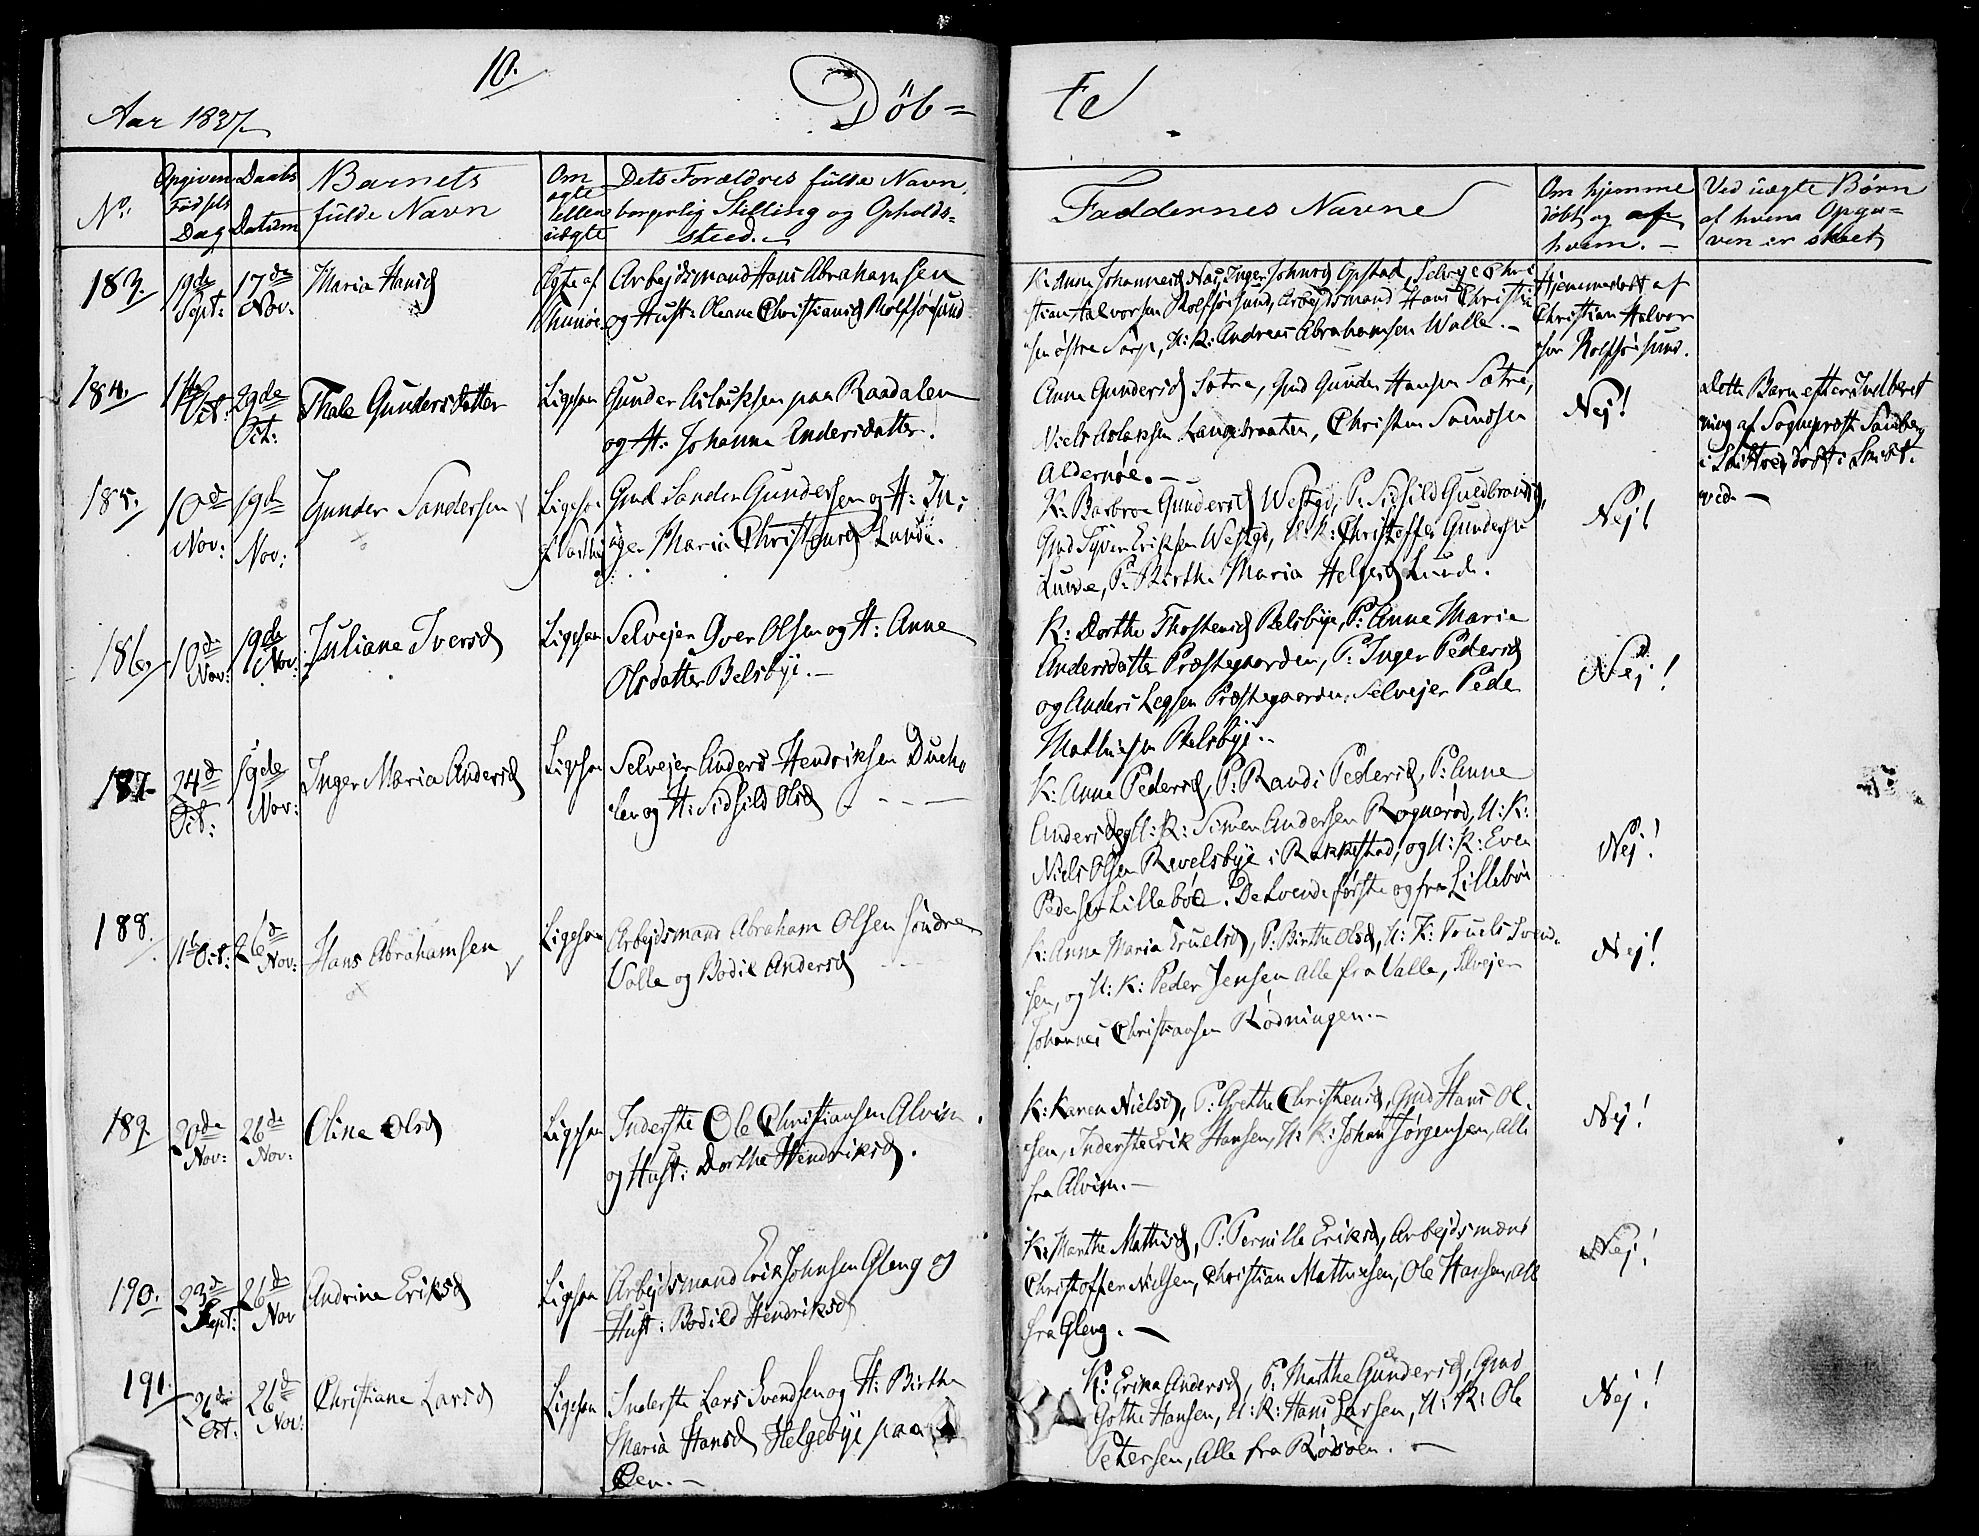 10.
Aar 1837
Döb=
te
No:
Opgiven Födsels Dag
Daabs Datum
Barnets fulde Navn
Om ægte eller uægte
Dets Forældres fulde Navn, borgerlig Stilling og Opholds=sted.
Faddernes Navne
Om hjemme döbt og af hvem.
Ved uægte Börn af hvem Opgiven er skeet
183.
19de Sept:
17de Nov:
Maria Hansd
Ægte af
Arbejdsmand Hans Abrahamsen
og Hust: Oleane Christiansd Rolfsöesund
K: Anne Johannesd Næs, Inger Johnsd Opstad, Selvejer Chri
stian Halvorsen Rolfsöesund, Arbejdsmand Hans Christi
sen östre Sarp, U: K: Andreas Abrahamsen Walle.
Hjemmedöbt af
Christian Halvor
sen Rolfsöesund.
184.
Oct:
29de Oct:
Thale Gundersdatter
Ligesaa
Gunder Aslaksen paa Raadalen
og H: Johanne Andersdatter.
Anne Gundersd Sætre, Gmd Gunder Hansen Sætre,
Niels Aslaksen Langeraaten, Christen Svendsen
Aldernöe.
Nej!
Dette Barn efter Indberet
ning af Sogneprest Sandberg
i
ved.
185.
10d Nov:
19d Nov:
Gunder Sandersen
Ligesaa
Gmd Sander Gundersen og H: In:
ger Maria Christensd Lunde.
K: Barbroe Gundersd Westgd, P: Sidsild Guldbrandsd,
Gmd Syver Eriksen Westgd, U: K: Christoffer Gundersen
Lunde, P: Birthe Maria Helgesd Lunde.
Nej!
186.
10d Nov:
19de Nov:
Juliane Iversd
Ligesaa
Selvejer Iver Olsen og H: Anne
Olsdatter Belsbye.
K: Dorthe Thostensd Belsbye, P: Anne Maria
Andersdatter Præstegaarden, P: Inger Pedersd
og Anders Legsen Præstegaarden, Selvejer Peder
Mathiesen Belsbye.
Nej!
187
24d Oct:
19de Nov:
Inger Maria Andersd
Ligesaa
Selvejer Anders Hendriksen Bucho
len og H: Sidsild Olsd
K: Anne Pedersd, P: Randi Pedersd, P: Anne
Andersd og U: K: Simen Andersen Rognerød, U: K:
Niels Olsen Revelsbye i Rakkestad, og U: K: Even
Pedersen Lilleböe. De tvende förste og fra Lilleböe
Nej!
188.
Oct:
26d Nov:
Hans Abrahamsen
Ligesaa
Arbejdsmand Abraham Olsen söndre
Valle og Bodil Andersd
K: Anne Maria Truelsd, P: Birthe Olsd, U: K: Truels Svend
sen, og U: K: Peder Jensen Alle fra Valle, Selvejer
Johannes Christiansen Rödningen.
Nej!
189.
20de Nov:
26d Nov:
Oline Olsd
Ligesaa
Inderste Ole Christiansen Alvim
og Hust: Dorthe Hendriksd.
K: Karen Nielsd, P: Grethe Christensd, Gmd Hans Ol
sen, Inderste Erik Hansen, U: K: Johan Jörgensen, Alle
fra Alvim.
Nej!
190.
23d Sept:
26d Nov
Andrine Eriksd
Ligesaa
Arbejdsmand Erik Johnsen Gleng og
Hust: Bodild Hendriksd
K: Marthe Mathisd, P: Pernille Eriksd, Arbejdsmænd
Christoffer Nielsen, Christian Mathiesen, Ole Hansen, Alle
fra Gleng.
Nej!
191.
26de Oct:
26d Nov:
Christiane Larsd
Ligesaa
Inderste Lars Svendsen og H: Birthe
Maria Hansd Helgebye paa
Öen.
K: Erika Andersd, P: Marthe Gundersd, Gmd
Gothe Hansen, U: K: Hans Larsen, U: K: Ole
Petersen, Alle fra Rödsöen.
Nej!